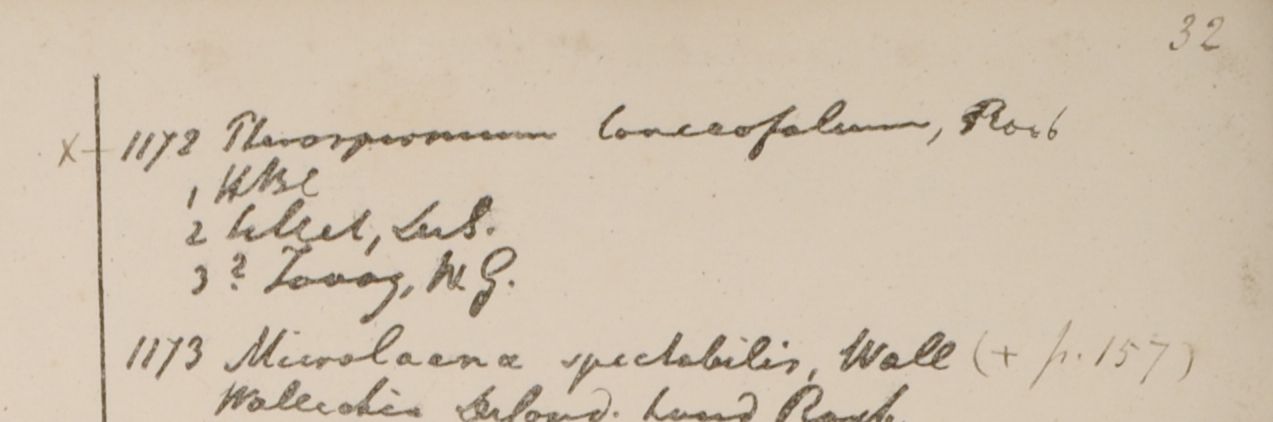 32
x 1172 Pterospermum lanceaefolium, Roxb
1 HBC
2 Silhet, De S.
3? Tavoy, W. G.
1173 Microlaena spectabilis, Wall (+ p. 157)
Wallichia